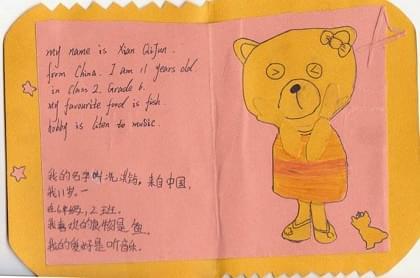 my name is Xian QiJun.
form China. I am 11 years old.
in Class 2 Grade 6.
my favourite food is fish.
hobby is liten to music.
我的名字叫冼淇 来自中国.
我11岁.
在6年级,2班.
我喜欢的食物是鱼
我的爱好是听音乐.